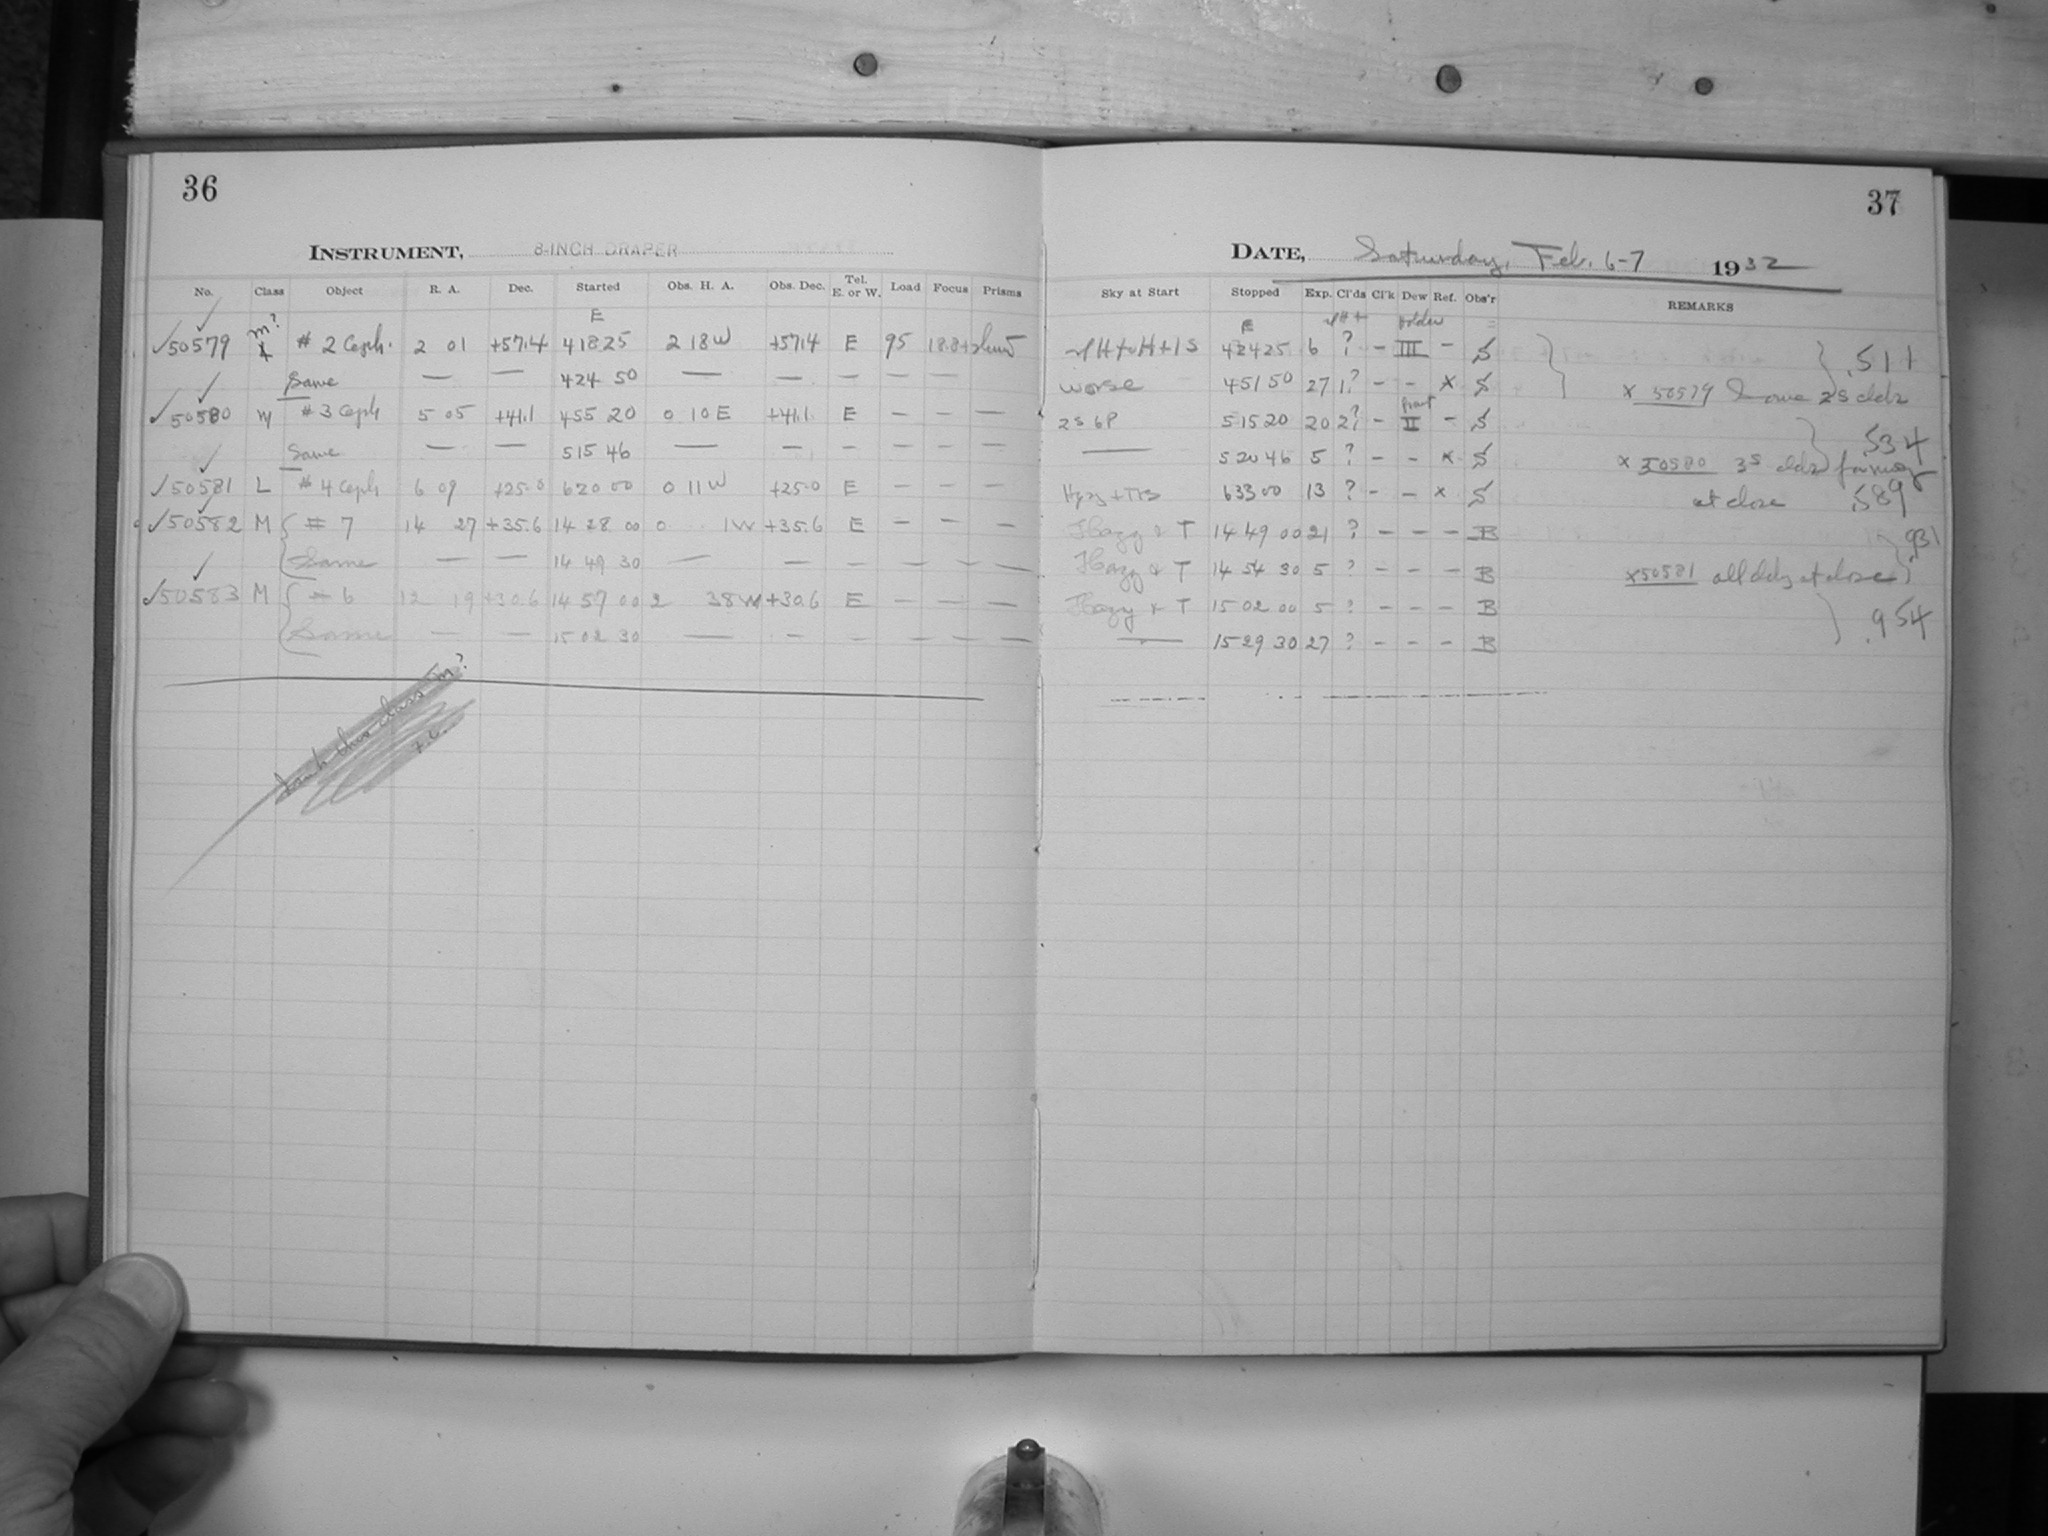 36
INSTRUMENT, 8-INCH DRAPER
No. Class Object R. A. Dec. Started Obs. H. A. Obs. Dec. Tel. E. or W. Load Focus Prisms
E
✓50579 m? # 2 Ceph. 2 01 +57.4 418 25 2 18 W +57.4 E 95 18.8
Same — — 424 50 — — — — —
✓50580 M # 3 Ceph 5 05 +41.1 455 20 0 10 E +41.1 E — — —
Same — — 515 46 — — — — — —
✓50581 L # 4 Ceph 6 09 +25.0 620 00 0 11 W +25.0 E — — —
✓50582 M # 7 14 27 +35.6 14 28 00 0 1 W +35.6 E — — —
Same — — 14 49 30 — — — — — —
✓50583 M # 6 12 19 +30.6 14 57 00 2 38 W +30.6 E — — —
Same — — 15 02 30 — — — — — —
class m?
37
DATE, Saturday, Feb. 6-7 1932
Sky at Start Stopped Exp. Cl'ds Cl'k Dew Ref. Obs'r REMARKS
E Holder
424 25 6 ? – III – S .511
worse 451 50 27 1? – – x S x 50579 Some 2s cldz
front
2s 6P 515 20 20 2? – II – S
— 520 46 5 ? – – x S .534
x 50580 3s cldz forming
633 00 13 ? – – x S at close .589
Hazy & T 14 49 00 21 ? – – – B .931
Hazy & T 14 54 30 5 ? – – – B x50581 all cldy at close
Hazy & T 15 02 00 5 ? – – – B .954
— 15 29 30 27 ? – – – B